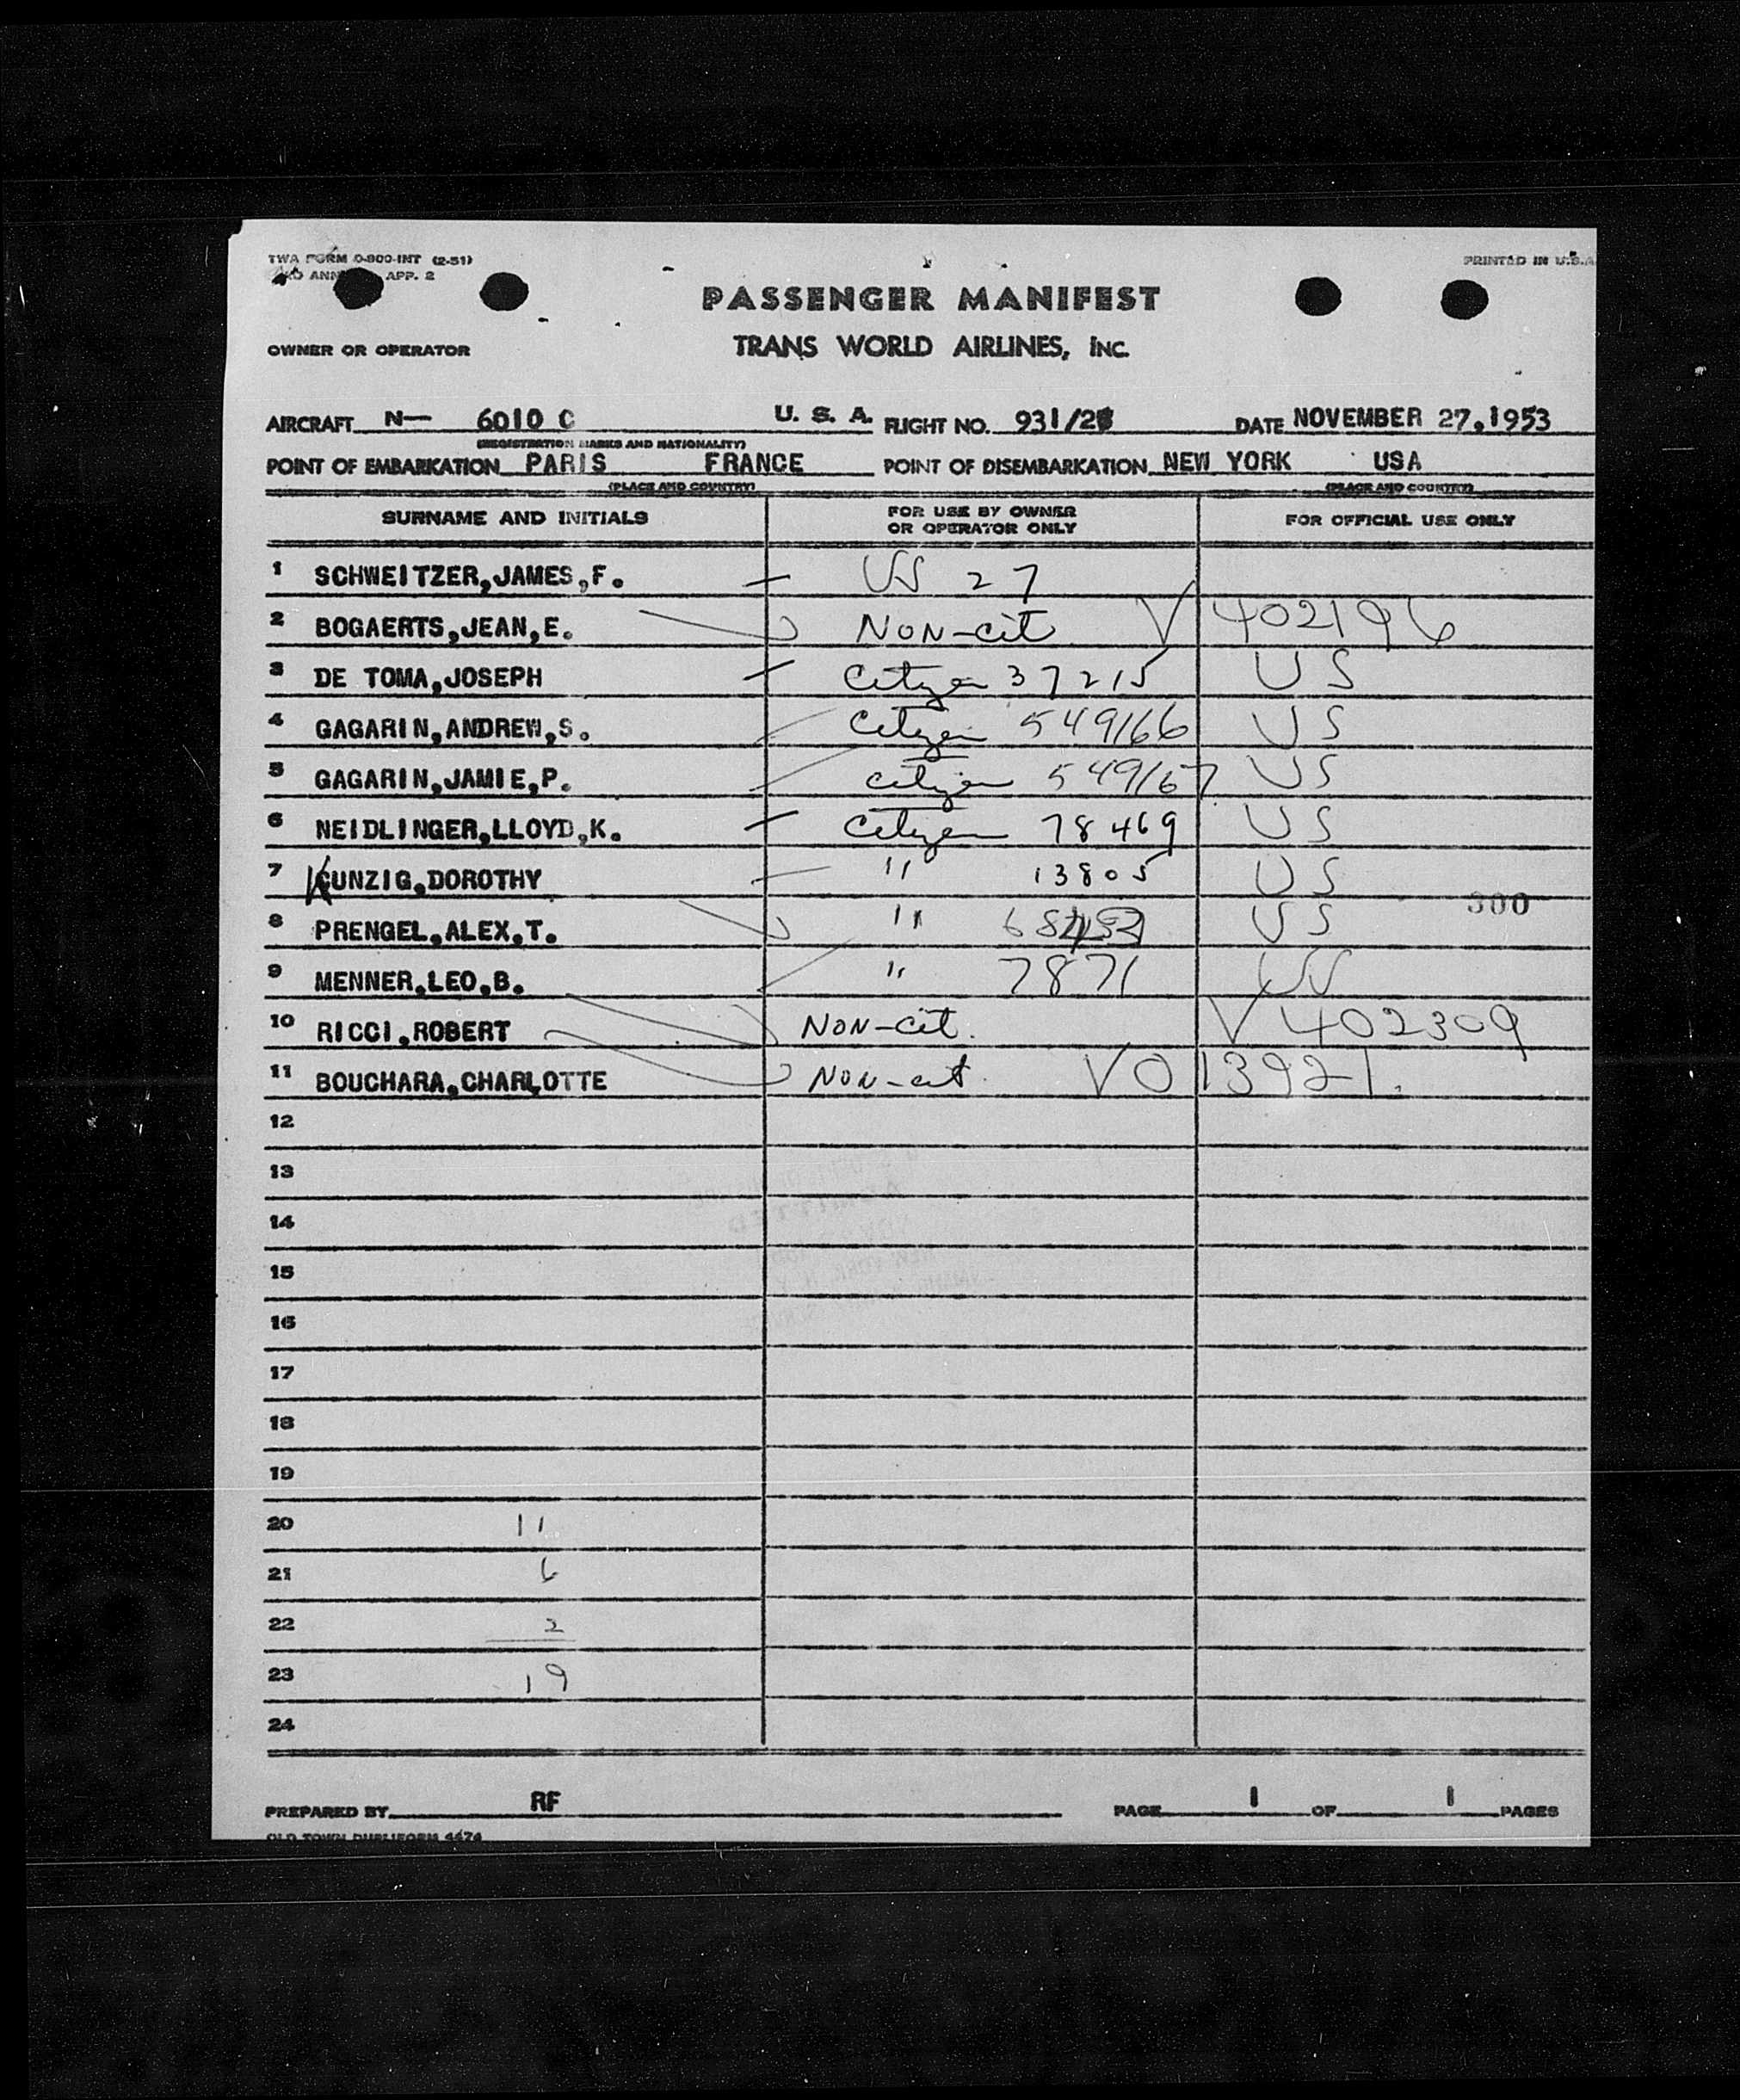 TWA FORM 0-800-INT (2-51)
APP. 2
PRINTED IN U.S.A.
PASSENGER MANIFEST
OWNER OR OPERATOR
TRANS WORLD AIRLINES, INC.
AIRCRAFT N— 6010 C U. S. A. FLIGHT NO. 931/ DATE NOVEMBER 27,1953
(REGISTRATION MARKS AND NATIONALITY)
POINT OF EMBARKATION PARIS FRANCE POINT OF DISEMBARKATION NEW YORK USA
(PLACE AND COUNTRY) (PLACE AND COUNTRY)
SURNAME AND INITIALS FOR USE BY OWNER OR OPERATOR ONLY FOR OFFICIAL USE ONLY
1 SCHWEITZER,JAMES,F. US 27
2 BOGAERTS,JEAN,E. NON-cit V 402196
3 DE TOMA,JOSEPH Citizen 37215 US
4 GAGARIN,ANDREW,S. Citizen 549166 US
5 GAGARIN,JAMIE,P. citizen 549167 US
6 NEIDLINGER,LLOYD,K. Citizen 78469 US
7 KUNZIG,DOROTHY " 13805 US
300
8 PRENGEL,ALEX,T. " US
9 MENNER,LEO,B. " 7871 US
10 RICCI,ROBERT NON-cit. V 402309
11 BOUCHARA,CHARLOTTE NON-cit. V 013921.
12
13
14
15
16
17
18
19
20 11
21 6
22 2
23 19
24
PREPARED BY RF PAGE 1 OF 1 PAGES
OLD TOWN DUPLIFORM 4474